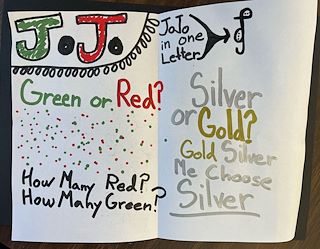 JoJo
Green or Red?
How Many Red?
How Many Green?
JoJo
in one
Letter
Silver
or
Gold?
Gold Silver
Me Choose
Silver